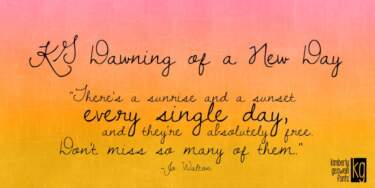 KG Dawning of a New Day
"There's a sunrise and a sunset
every single day,
and they're absolutely free.
Don't miss so many of them."
-Jo Walton
kimberly
geswein
fonts
kg